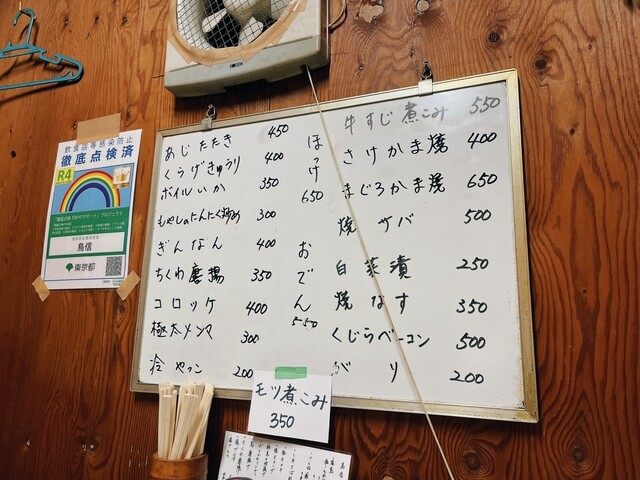 飲食店等感染防止
徹底点検済
R4
「徹底点検 TOKYOサポート」プロジェクト
鳥信
東京都
あじたたき 450
くらげきゅうり 400
ボイルいか 350
もやしのにんにく炒め 300
ぎんなん 400
ちくわ磯揚 350
コロッケ 400
極太メンマ 300
冷やっこ 200
ほっけ 650
おでん 550
牛すじ煮こみ 550
さけかま焼 400
まぐろかま焼 650
焼サバ 500
白菜漬 250
焼なす 350
くじらベーコン 500
がり 200
モツ煮こみ
350